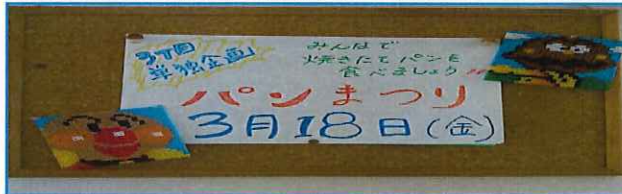 3丁目
単独企画
みんなで
焼きたてパンを
食べましょう!!
パンまつり
3月18日(金)